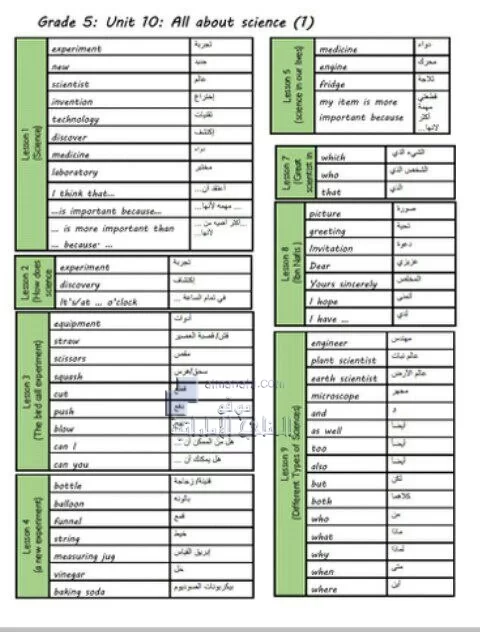 Grade 5: Unit 10: All about science (1)
Lesson 1
(Science)
experiment تجربة
new جديد
scientist عالم
invention إختراع
technology تقنيات
discover إكتشف
medicine دواء
laboratory مختبر
I think that... أعتقد أن...
...is important because... ... مهمه لأنها...
... is more important than ... because. ... ...أكثر أهميه من ... لأنها...
Lesson 2
(How does science
experiment تجربة
discovery إكتشاف
It's/at ... o'clock في تمام الساعة ...
Lesson 3
(The bird call experiment)
equipment أدوات
straw قش/ قصبة العصير
scissors مقص
squash سحق/هرس
cut
push
blow
can I هل من الممكن أن ...
can you هل يمكنك أن ...
Lesson 4
(a new experiment)
bottle قنينة/ زجاجة
balloon بالونه
funnel قمع
string خيط
measuring jug إبريق القياس
vinegar خل
baking soda بيكربونات الصوديوم
Lesson 5
(science in our lives)
medicine دواء
engine محرك
fridge ثلاجة
my item is more important because قطعتي مهمة أكثر لأنها...
Lesson 7
(Great scientist in
which الشيء الذي
who الشخص الذي
that الذي
Lesson 8
(Ibn Nafis)
picture صورة
greeting تحية
Invitation دعوة
Dear عزيزي
Yours sincerely المخلص
I hope أتمنى
I have ... لدي
Lesson 9
(Different Types of Sciences)
engineer مهندس
plant scientist عالم نبات
earth scientist عالم الأرض
microscope مجهر
and و
as well أيضا
too أيضا
also أيضا
but لكن
both كلاهما
who من
what ماذا
why لماذا
when متى
where أين